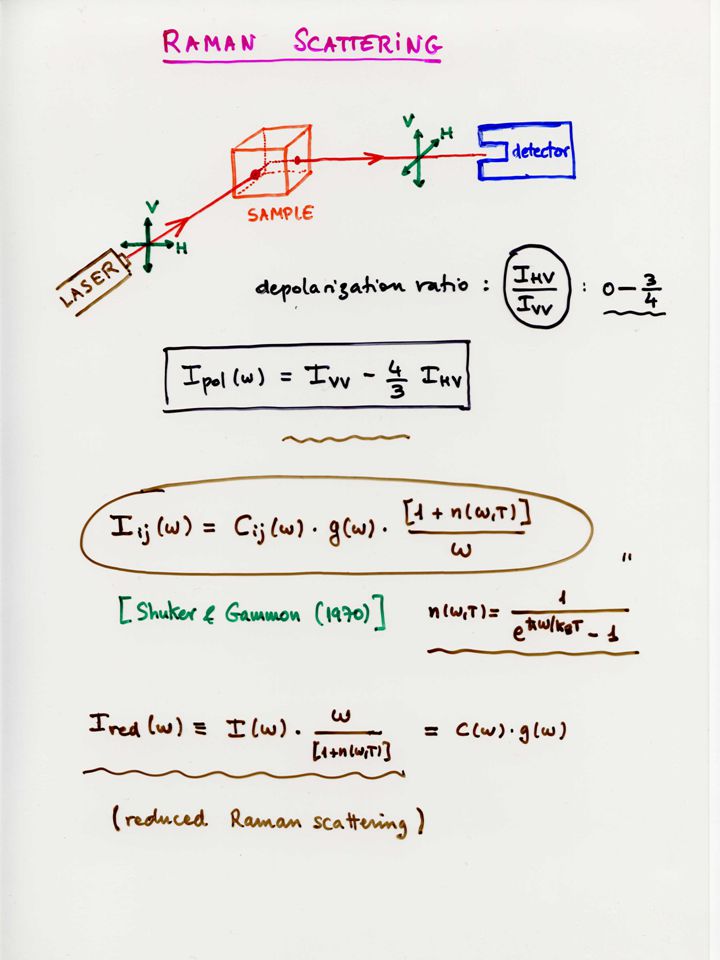 RAMAN SCATTERING
V
H
detector
SAMPLE
V
H
LASER
depolarization ratio : I_HV / I_VV : 0 – 3/4
I_pol (ω) = I_VV – 4/3 I_HV
I_ij (ω) = C_ij (ω) · g(ω) · [1 + n(ω,T)] / ω
"
[Shuker & Gammon (1970)]
n(ω,T) = 1 / e^ħω/k_BT – 1
I_red (ω) ≡ I(ω) · ω / [1+n(ω,T)] = C(ω) · g(ω)
(reduced Raman scattering)